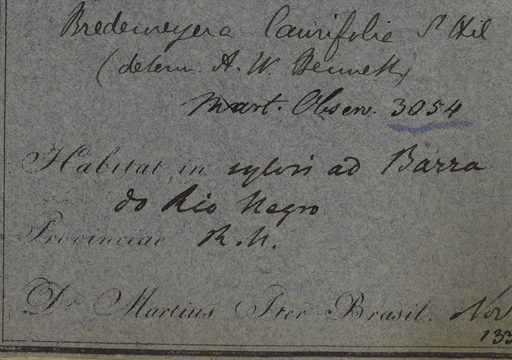 Bredemeyera laurifolia St Hil
(determ. A. W. Bennett)
Mart. Observ. 3054
Habitat in sylvis ad Barra
do Rio Negro
Provinciae R. N.
Dr. Martius Iter Brasil. Nov
133